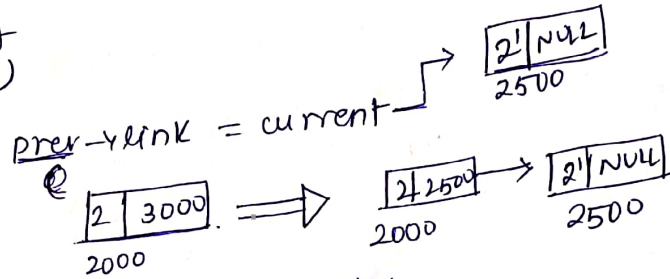 2' NULL
2500
prev→link = current
2 3000
2000
2 2500
2000
2' NULL
2500